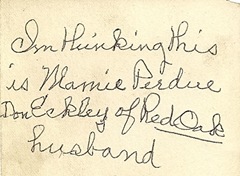 Im thinking this
is Mamie Perdue
Don Eckley of Red Oak
husband